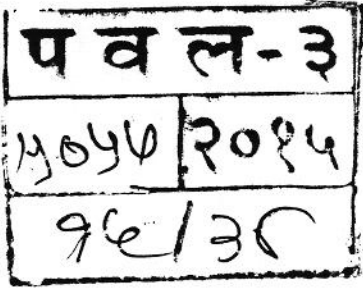 प व ल-३
५०५७ २०१५
१६/३८